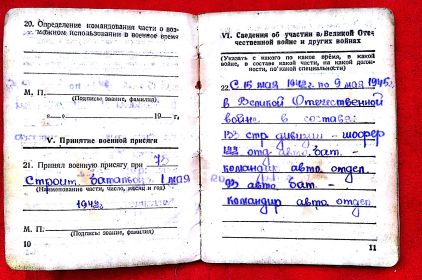 20. Определение командования части о воз-
можном использовании в военное время
М. П.
(Подписы звание, фамилия)
«—» 19 г.
V. Принятие военной присяги
21. Принял военную присягу при 78
Строит. батальон 1 мая
(Наименование части, число, месяц и год)
1942г
М. П.
(Подпись, звание, фамилия)
10
VI. Сведения об участии в Великой Оте-
чественной войне и других войнах
(Указать с какого по какое время, в какой
войне, в составе какой части, на какой долж-
ности, по какой специальности)
22. С 15 мая 1942г. по 9 мая 1945г.
в Великой Отечественной
войне в составе:
стр дивизии - шофер
133 отд. авто. бат. -
командир авто. отдел.
93 авто. бат. -
командир авто. отдел.
11